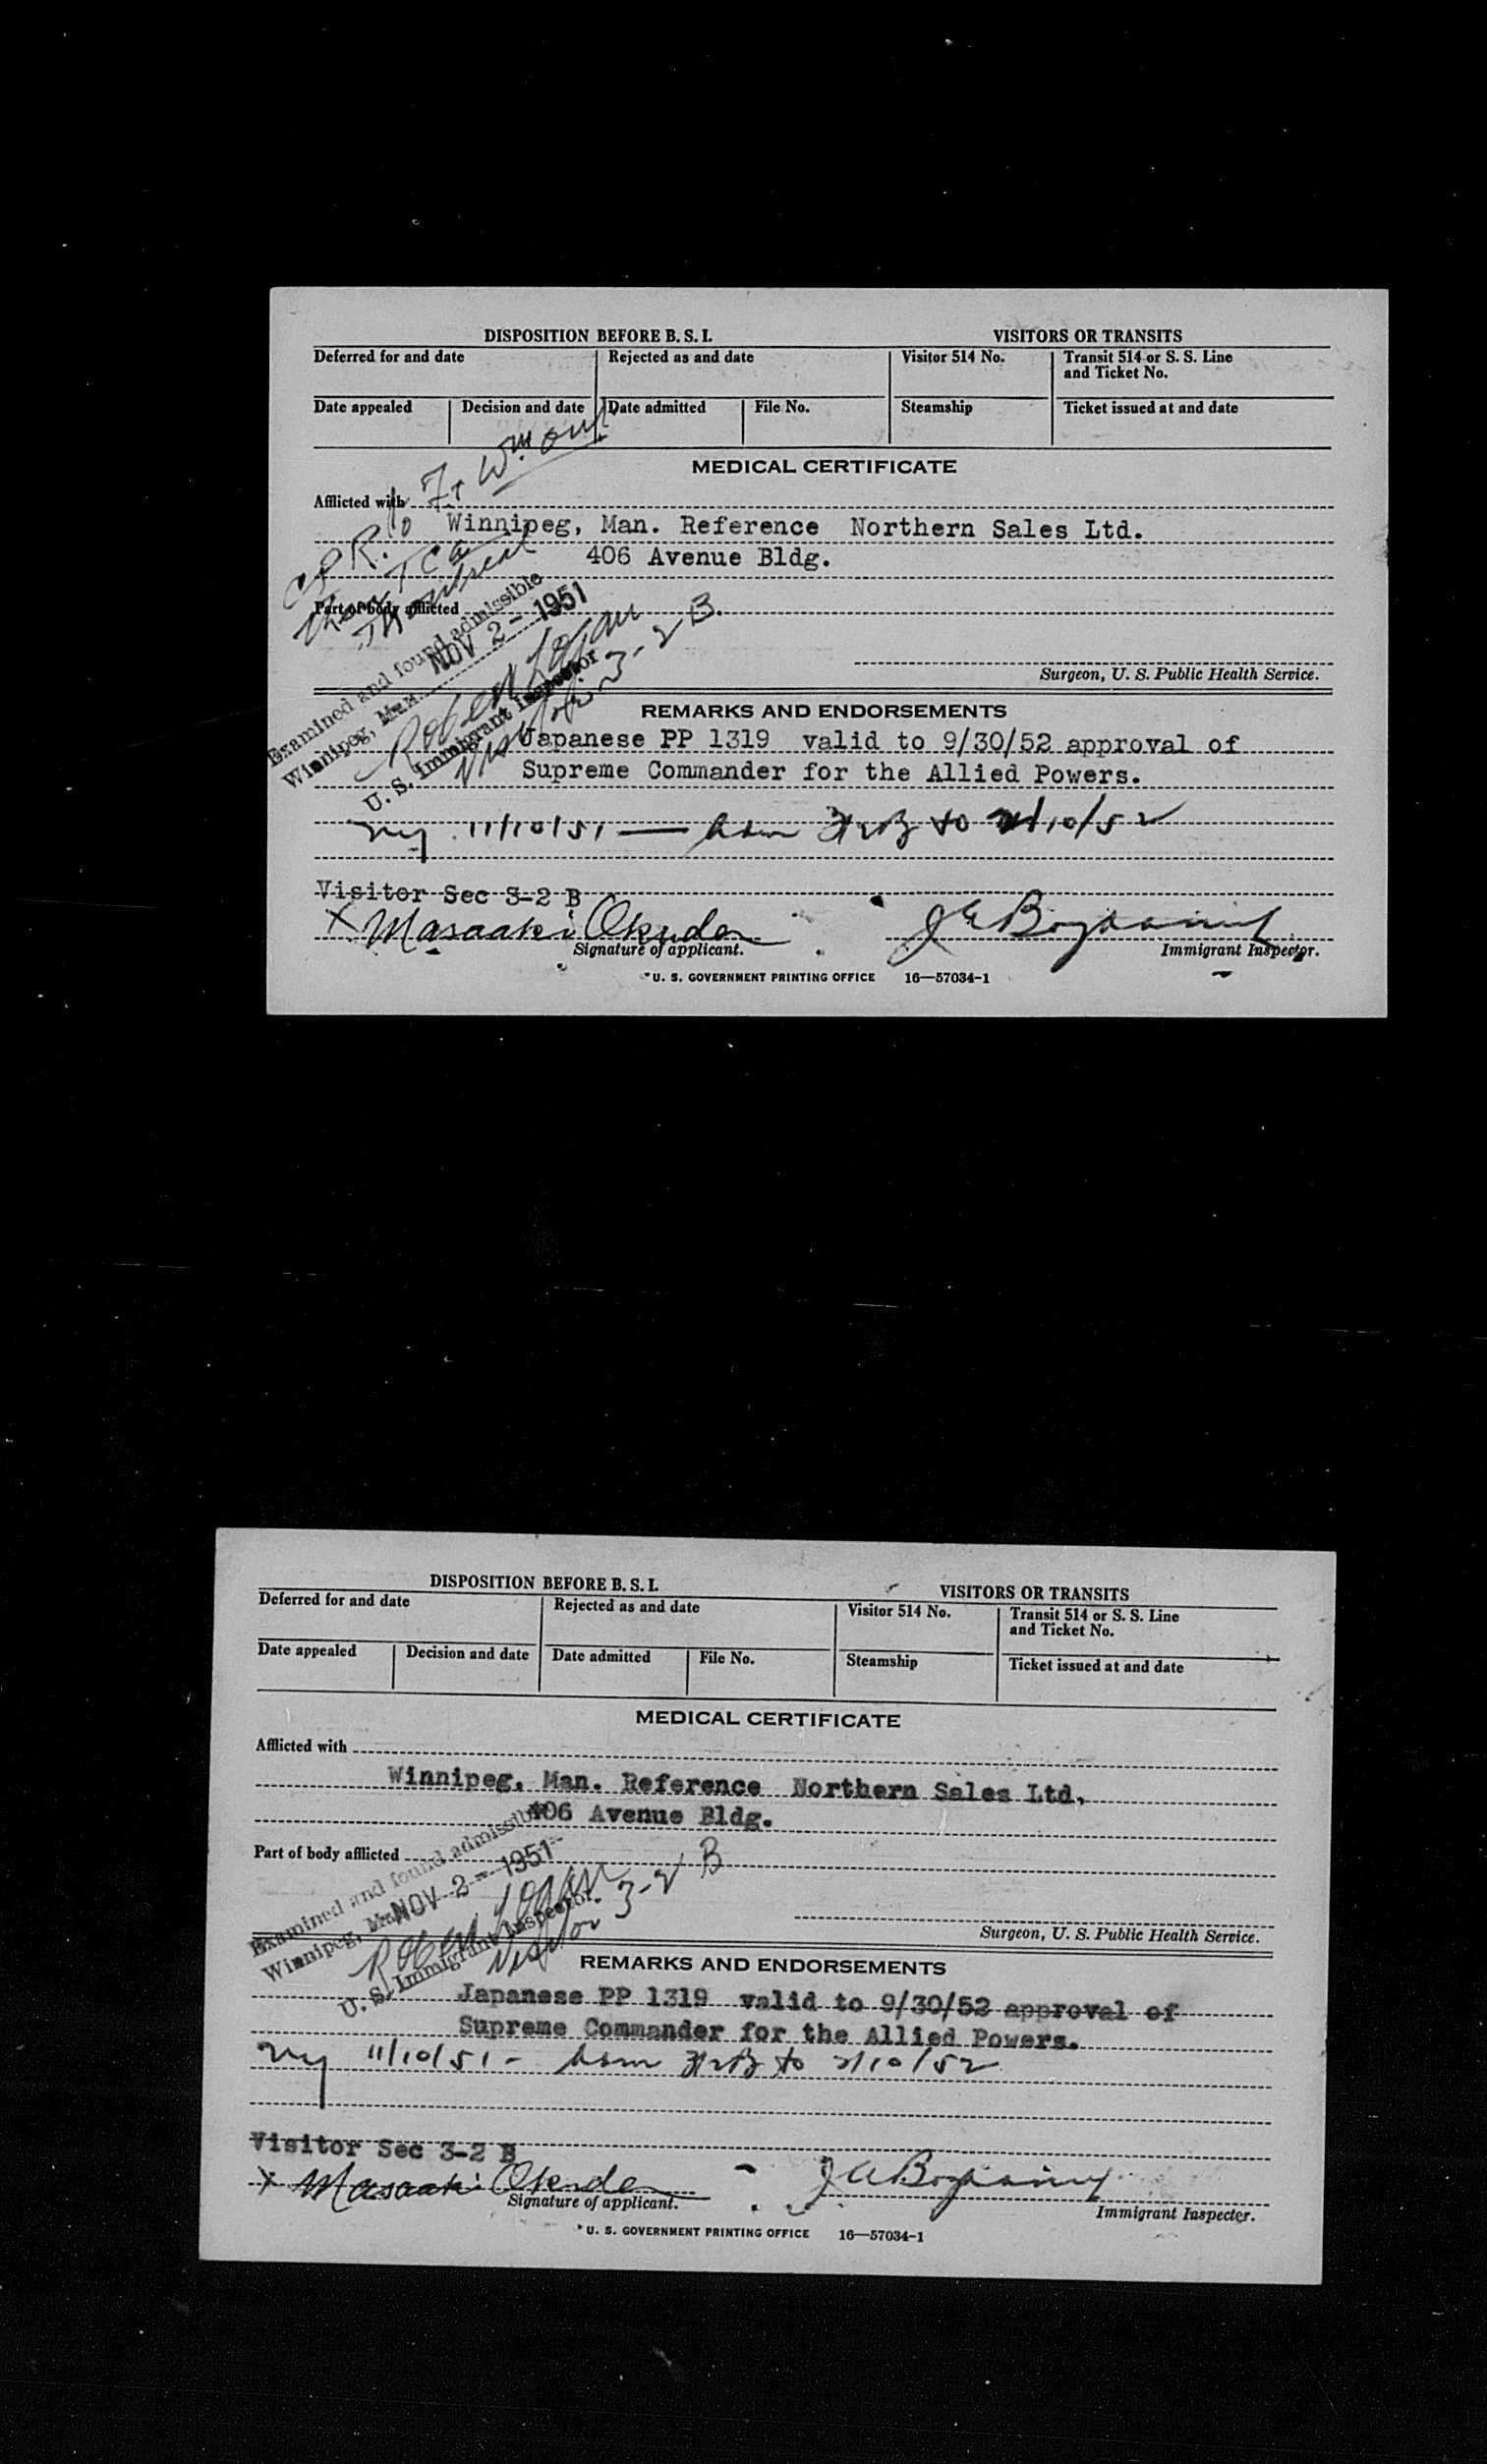 DISPOSITION BEFORE B. S. I.
VISITORS OR TRANSITS
Deferred for and date
Rejected as and date
Visitor 514 No.
Transit 514 or S. S. Line
and Ticket No.
Date appealed
Decision and date
Date admitted
File No.
Steamship
Ticket issued at and date
MEDICAL CERTIFICATE
Afflicted with
to Ft Wm Ont
Winnipeg, Man. Reference Northern Sales Ltd.
406 Avenue Bldg.
CPR.
Then TCA
Montreal
Part of body afflicted
Examined and found admissible
Winnipeg, Man. NOV 2 - 1951
Logan
U. S. Immigrant Inspector
Visitor 3-2 B.
Surgeon, U. S. Public Health Service.
REMARKS AND ENDORSEMENTS
Japanese PP 1319 valid to 9/30/52 approval of
Supreme Commander for the Allied Powers.
ny 11/10/51 — adm 3-2B to 2/10/52
Visitor Sec 3-2 B
X Masaaki Okuda
Signature of applicant.
Immigrant Inspector.
U. S. GOVERNMENT PRINTING OFFICE 16—57034-1
DISPOSITION BEFORE B. S. I.
VISITORS OR TRANSITS
Deferred for and date
Rejected as and date
Visitor 514 No.
Transit 514 or S. S. Line
and Ticket No.
Date appealed
Decision and date
Date admitted
File No.
Steamship
Ticket issued at and date
MEDICAL CERTIFICATE
Afflicted with
Winnipeg, Man. Reference Northern Sales Ltd.
406 Avenue Bldg.
Part of body afflicted
Examined and found admissible
Winnipeg, Man. NOV 2 - 1951
Logan
U. S. Immigrant Inspector.
Visitor 3-2 B
Surgeon, U. S. Public Health Service.
REMARKS AND ENDORSEMENTS
Japanese PP 1319 valid to 9/30/52 approval of
Supreme Commander for the Allied Powers.
ny 11/10/51 - adm 3-2B to 2/10/52
Visitor Sec 3-2 B
X Masaaki Okuda
Signature of applicant.
Immigrant Inspector.
U. S. GOVERNMENT PRINTING OFFICE 16—57034-1